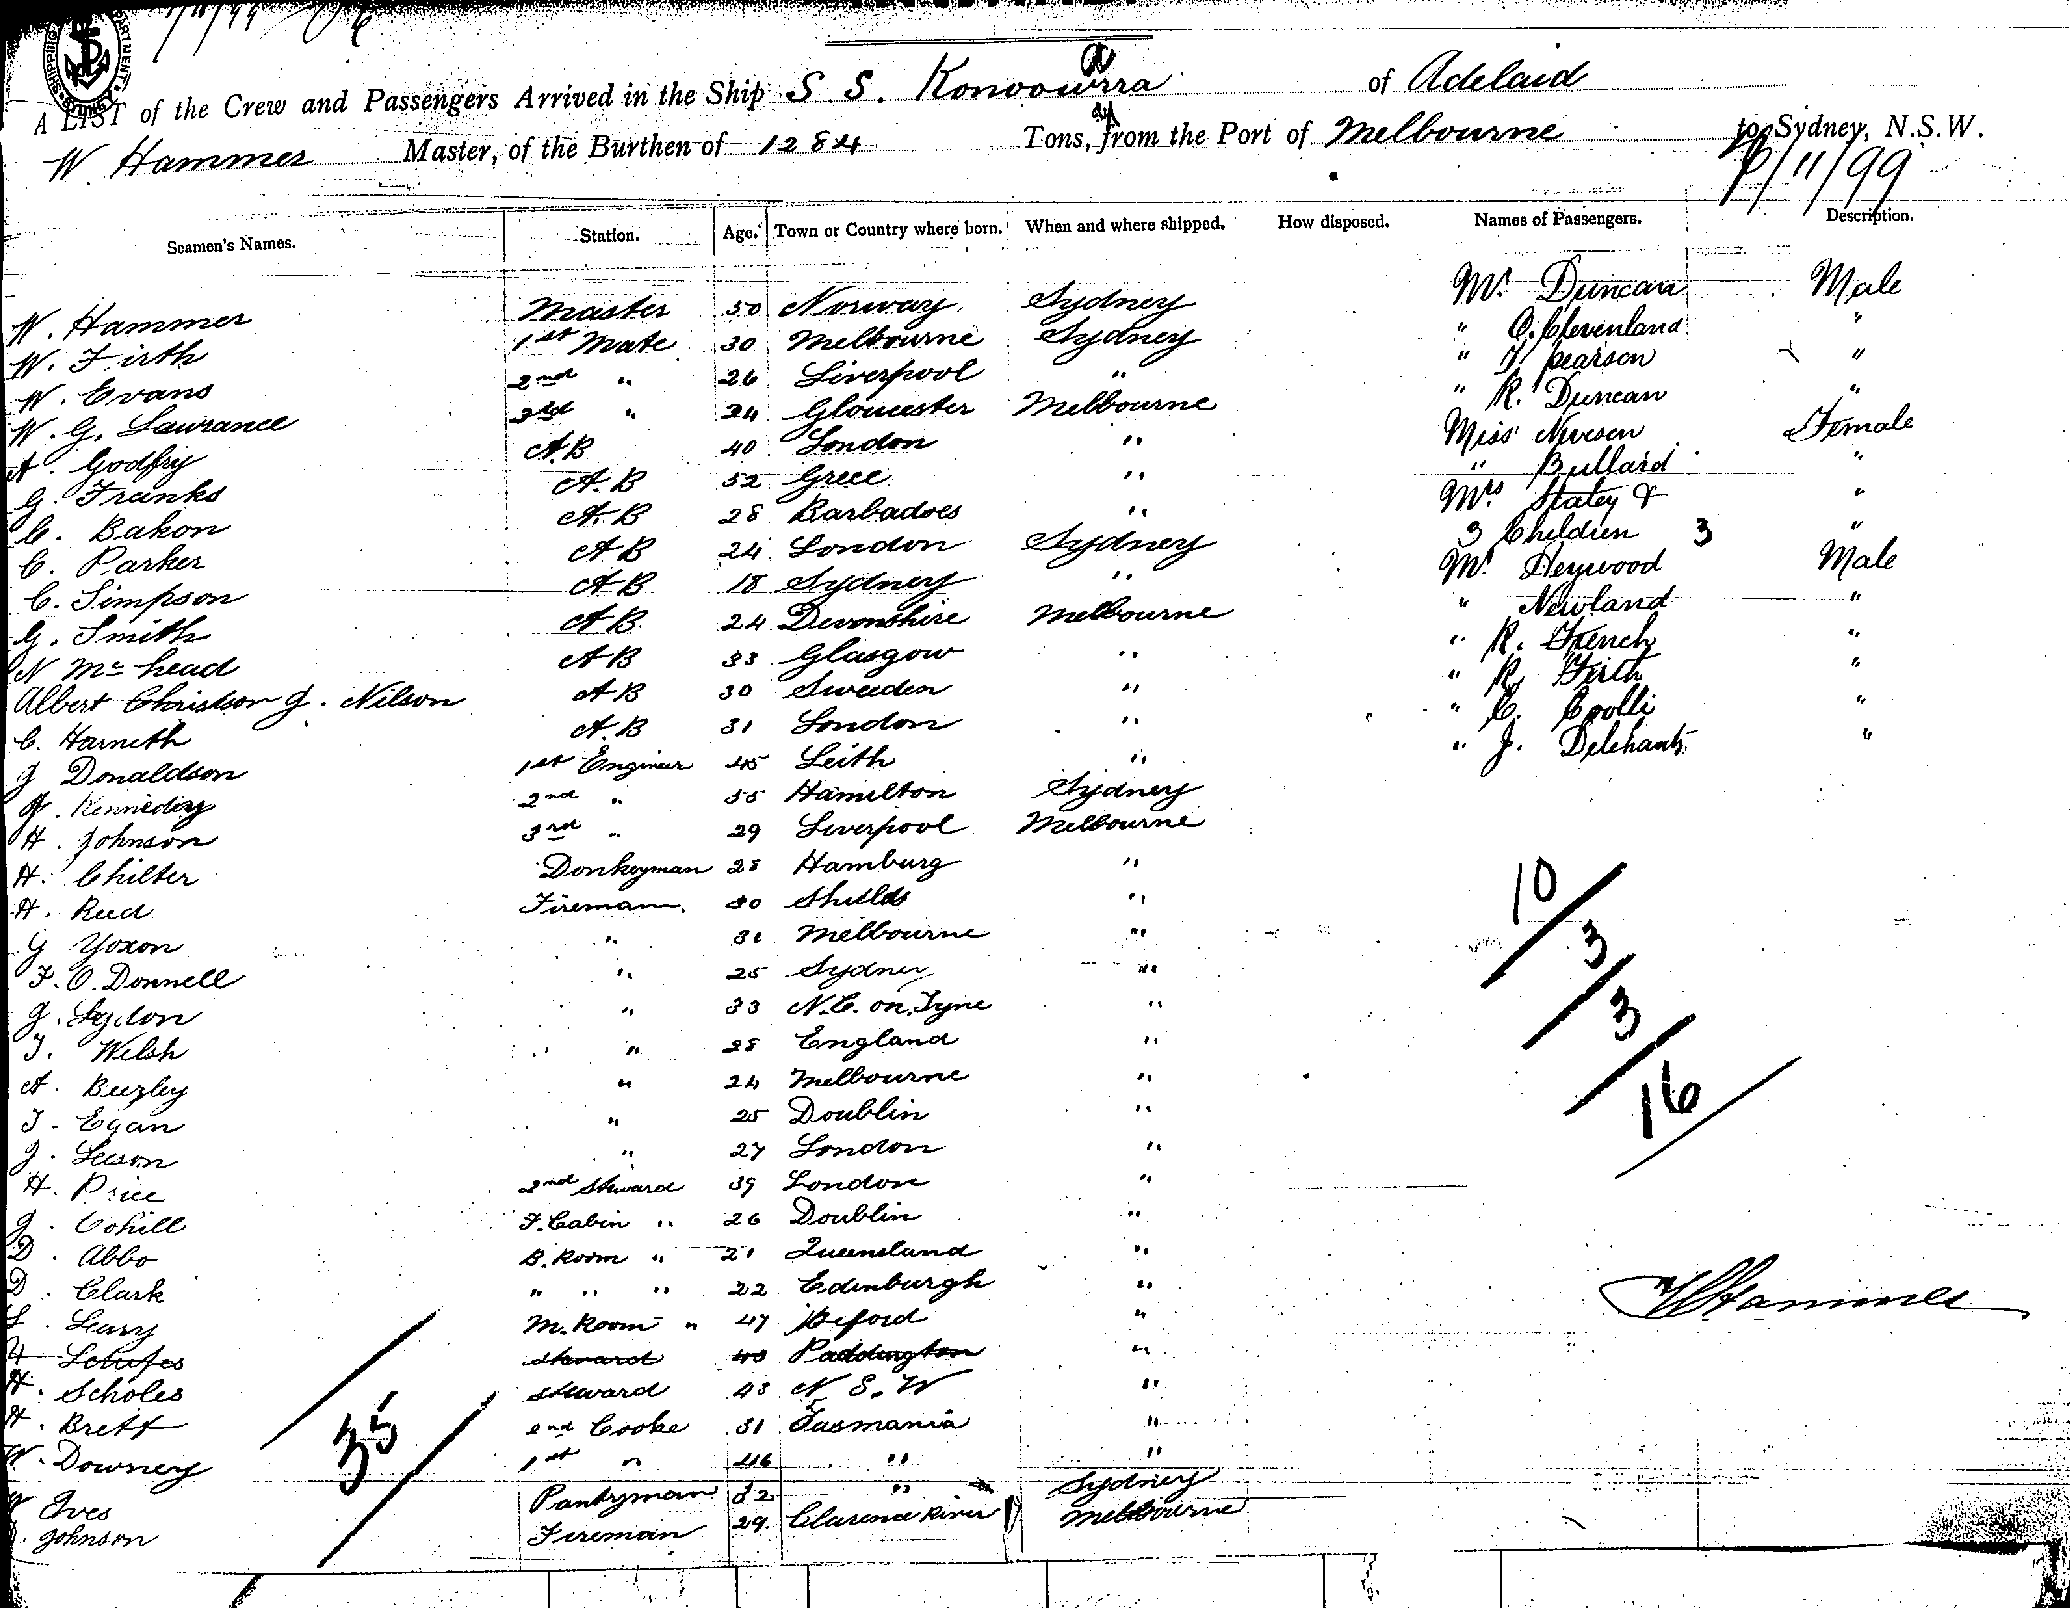 A LIST of the Crew and Passengers Arrived in the Ship S S. Konoowarra of Adelaid
W. Hammer Master, of the Burthen of 1284 Tons, from the Port of Melbourne to Sydney, N.S.W.
/11/99
Seamen's Names. Station. Age. Town or Country where born. When and where shipped. How disposed. Names of Passengers. Description.
W. Hammer Master 50 Norway Sydney Mr. Duncan Male
W. Firth 1st Mate 30 Melbourne Sydney " C. Clevenland "
W. Evans 2nd " 26 Liverpool " " pearson "
W. G. Lawrance 3rd " 24 Gloucester Melbourne " R. Duncan "
A. Godfry A.B 40 London " Miss Female
G. Franks A.B 52 Grece " " Bullard "
C. Bakon A.B 28 Barbadoes " Mrs Staley & "
C. Parker A B 24 London Sydney 3 Children 3 "
C. Simpson A B 18 Sydney " Mr. Heywood Male
G. Smith A B 24 Devonshire Melbourne " Newland "
N Mc head A B 33 Glasgow " " R. French "
Albert Christson J. Nilson A B 30 Sweeden " " R. Firth "
C. Harneth A.B 31 London " " C. Crolli "
J Donaldson 1st Engineer 45 Leith " " J. Delehanty "
J. Kennedy 2nd " 55 Hamilton Sydney
H. Johnson 3rd " 29 Liverpool Melbourne
H. Chilter Donkeyman 28 Hamburg "
H. Reed Fireman 30 Shields "
G Yoxon " 31 Melbourne "
F. O. Donnell " 25 Sydney "
J. Lydon " 33 N.C. on Tyne "
T. Welsh " 28 England "
A. Beezley " 24 Melbourne "
T. Egan " 25 Doublin "
J. Leeson " 27 London "
H. Price 2nd Steward 39 London "
J. Cohill F. Cabin " 26 Doublin "
D. Abbo B. Room " 21 Queensland "
D. Clark " " " 22 Edinburgh "
L. Leary M. Room " 47 "
Steward 43 Paddington "
H. Scholes Steward 43 N. S. W "
H. Brett 2nd Cooke 31 Tasmania "
W. Downey 1st " 46 " "
Ives Pantryman 32 " Sydney
Johnson Fireman 29 Clarence River Melbourne
10
3
3
16
W Hammer
35